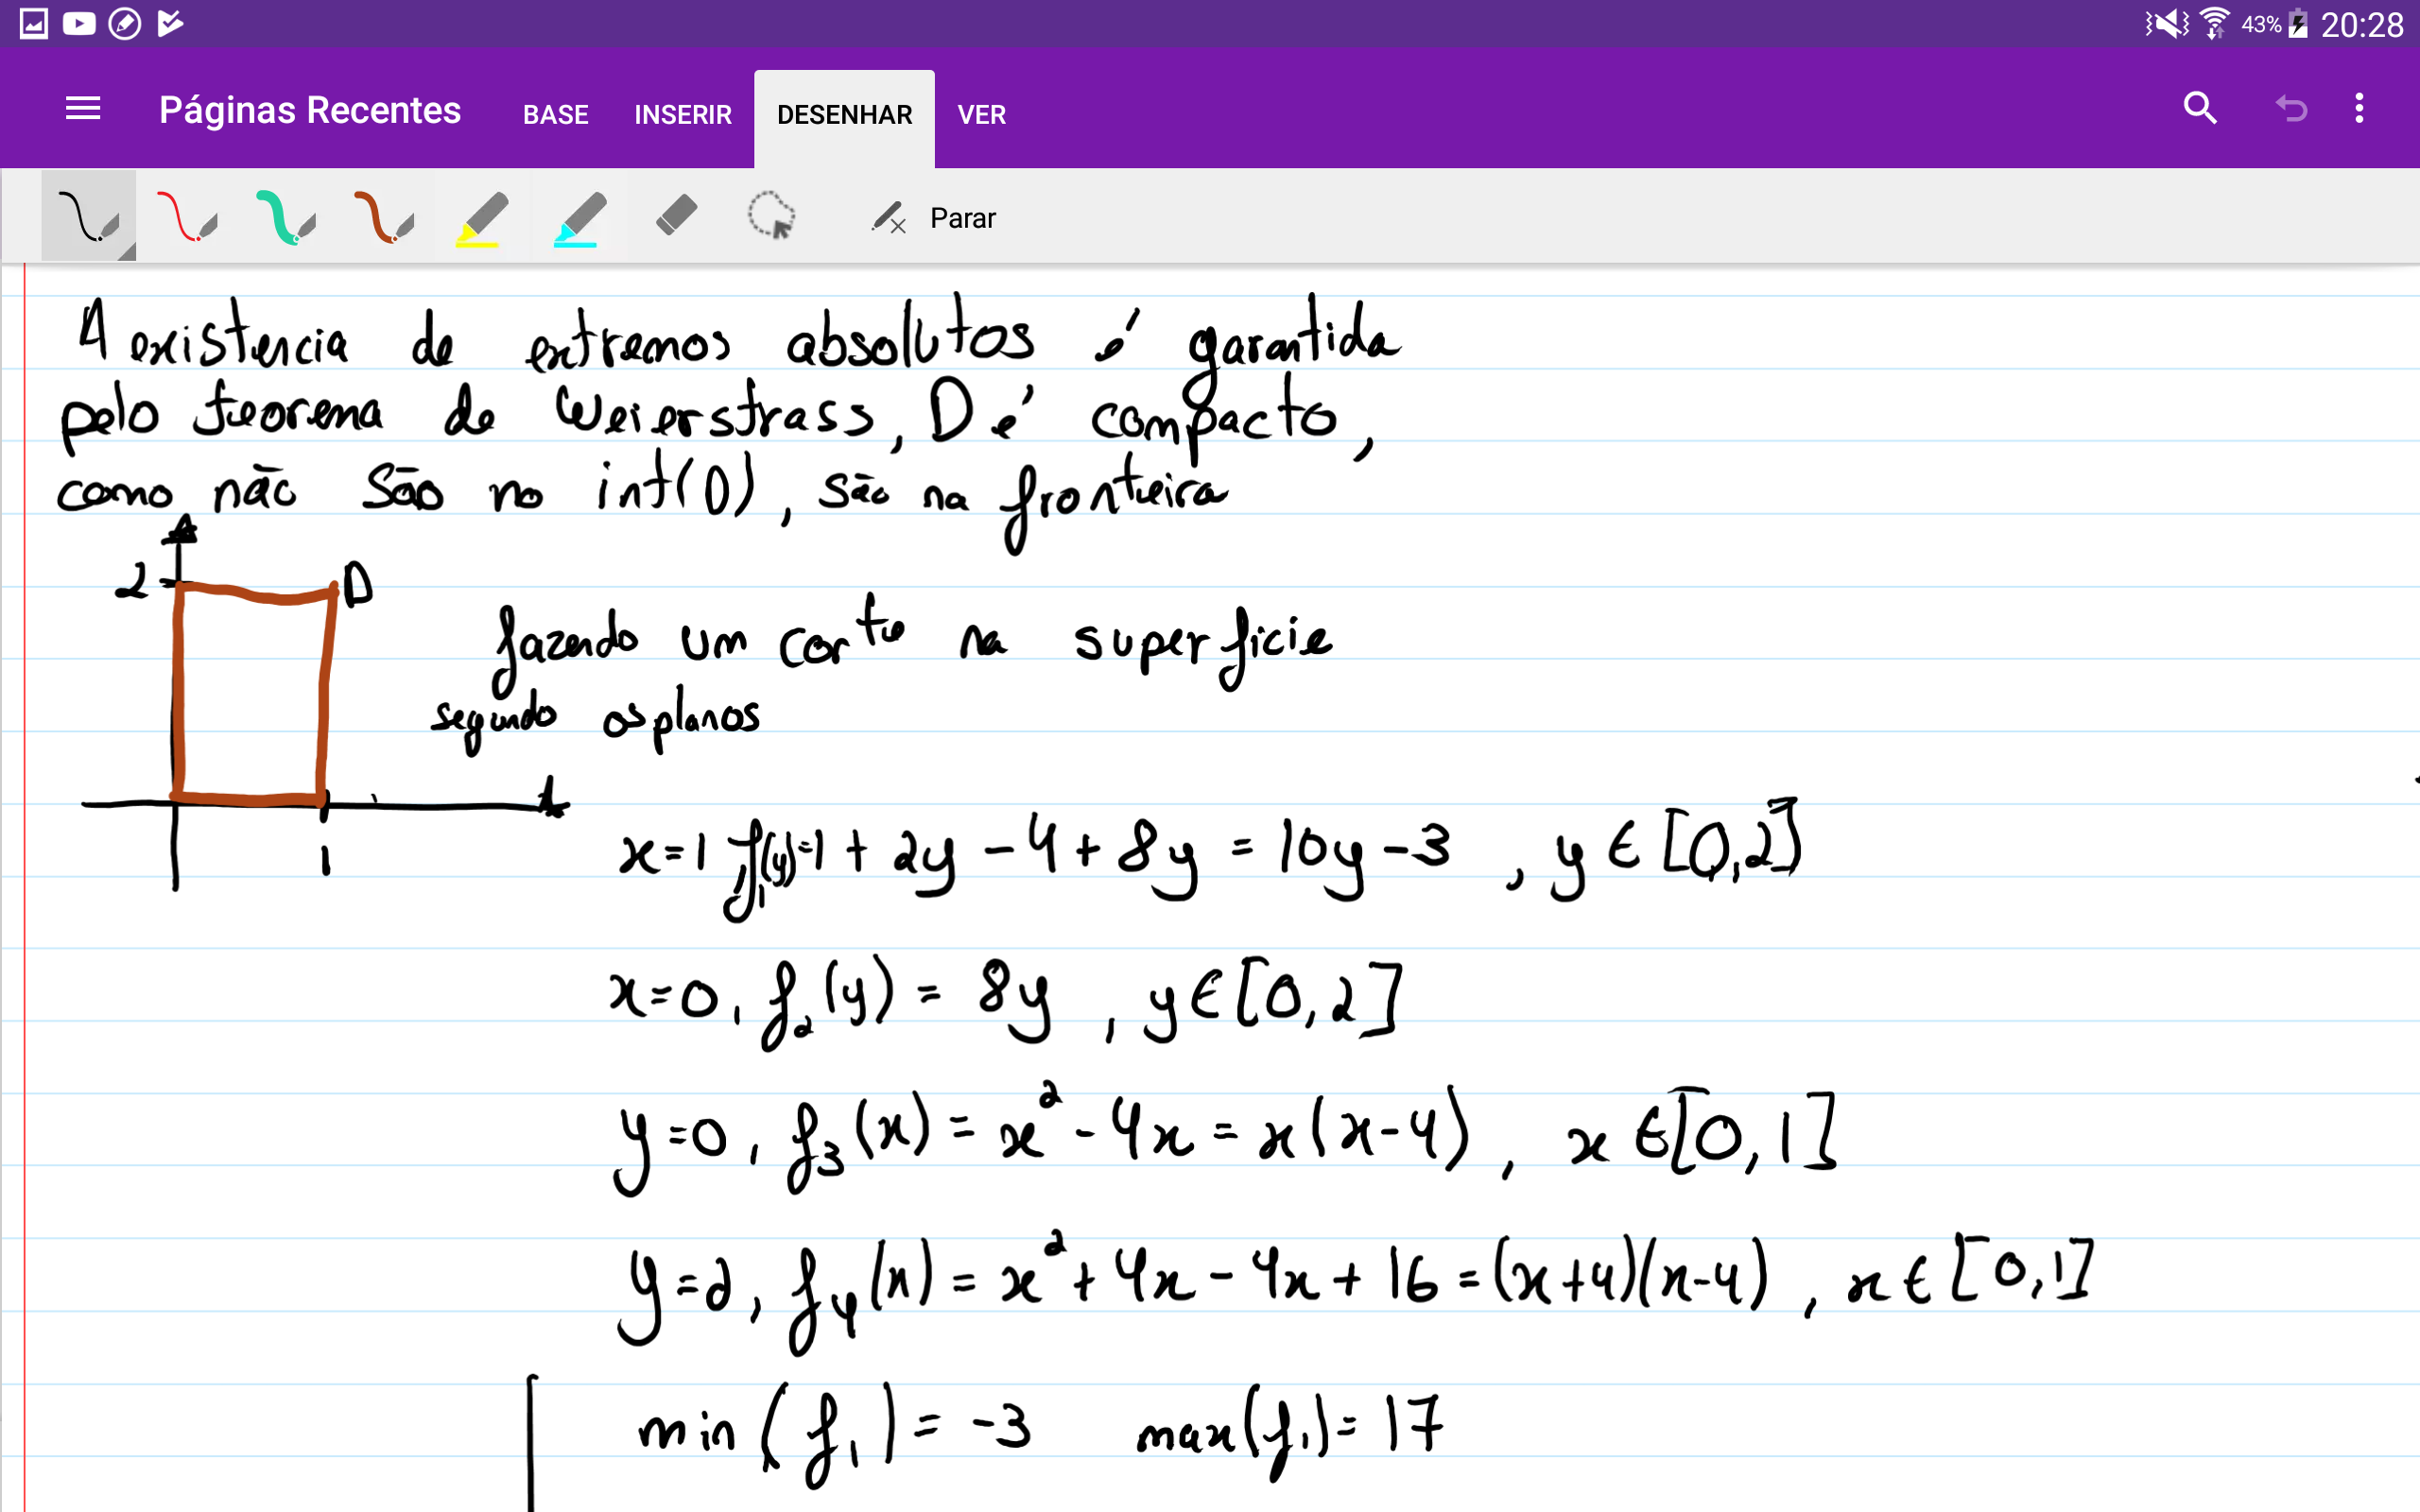 43% 20:28
Páginas Recentes BASE INSERIR DESENHAR VER
Parar
A existencia de extremos absolutos é garantida
pelo teorema de Weierstrass, D é compacto,
como não são no int(D), são na fronteira
2 D
fazendo um corte na superficie
segundo os planos
1
x=1 f₁(y)=1+2y-4+8y=10y-3, y∈[0,2]
x=0, f₂(y)=8y, y∈[0,2]
y=0, f₃(x)=x²-4x=x(x-4), x∈[0,1]
y=2, f₄(x)=x²+4x-4x+16=(x+4)(x-4), x∈[0,1]
min(f₁)=-3 max(f₁)=17